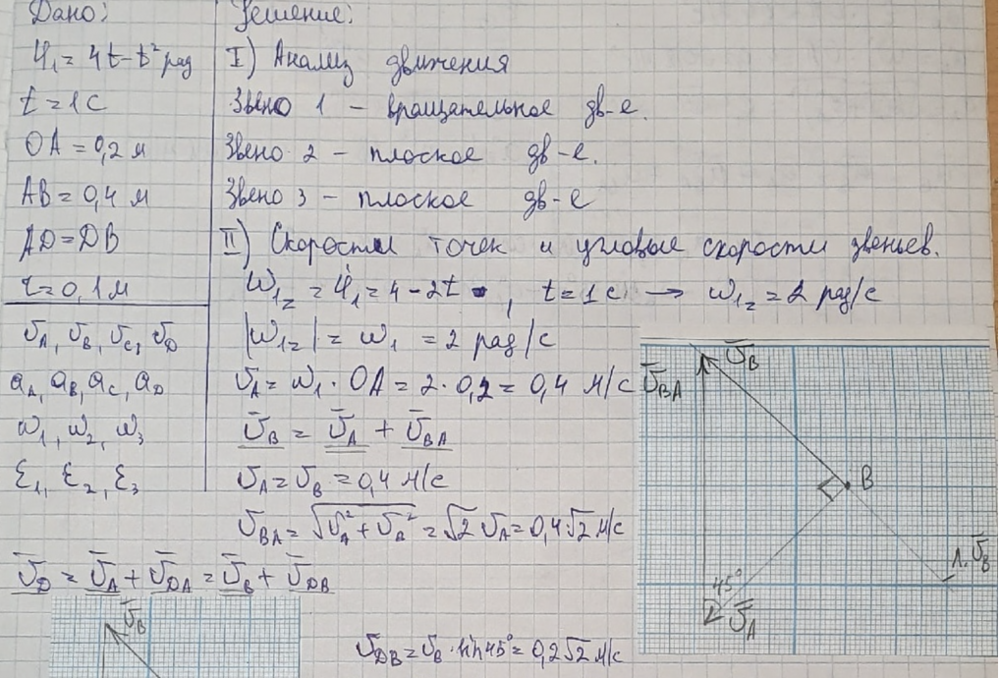 Дано:
φ₁ = 4t - t² рад
t = 1 с
OA = 0,2 м
AB = 0,4 м
AD = DB
r = 0,1 м
v̄A, v̄B, v̄C, v̄D
aA, aB, aC, aD
ω₁, ω₂, ω₃
ε₁, ε₂, ε₃
Решение:
I) Анализ движения
Звено 1 – вращательное дв-е.
Звено 2 – плоское дв-е.
Звено 3 – плоское дв-е
II) Скорости точек и угловые скорости звеньев.
ω₁z = φ̇₁ = 4 - 2t , t = 1 с → ω₁z = 2 рад/с
|ω₁z| = ω₁ = 2 рад/с
vA = ω₁ · OA = 2 · 0,2 = 0,4 м/с
v̄B = v̄A + v̄BA
vA = vB = 0,4 м/с
vBA = √(vA² + vA²) = √2 vA = 0,4√2 м/с
v̄D = v̄A + v̄DA = v̄B + v̄DB
vDB = vB · sin 45° = 0,2√2 м/с
v̄B
v̄BA
B
45°
v̄A
Л.v̄B
v̄B